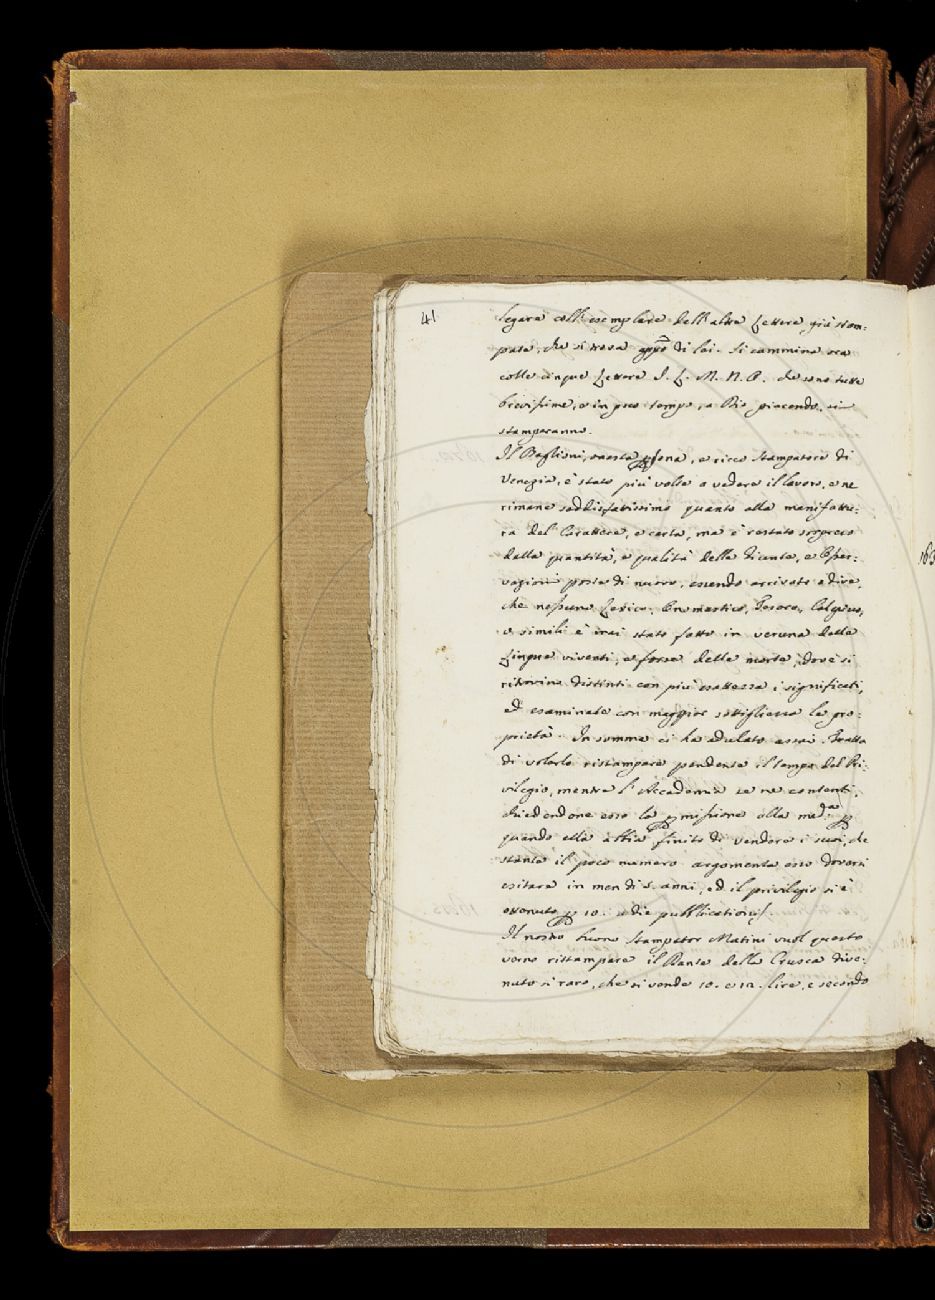 41
legare coll'esemplare dell'altre Lettere, già stam-
pate, che si trova app.o di lei. Si cammina ora
colle cinque Lettere I. L. M. N. O. che sono tutte
brevissime, e in poco tempo, a Dio piacendo, si
stamperanno.
Il Baglioni, onesta persona, e ricco Stampatore di
Venezia, è stato più volte a vedere il lavoro, e ne
rimane soddisfatissimo quanto alla manifattu-
ra del Carattere, e carta, ma è restato sorpreso
dalla quantità, e qualità delle Giunte, e Osser-
vazioni poste di nuovo, essendo arrivato a dire,
che nessuno Lessico, Onomastico, Tesoro, Calepino,
o simili è mai stato fatto in veruna delle
Lingue viventi, e forse delle morte, dove si
ritrovino distinti con più esattezza i significati,
ed esaminate con maggior sottigliezza le pro-
prietà. In somma ci ha adulato assai. Tratta
di volerlo ristampare pendente il tempo del Pri-
vilegio, mentre l'Accademia se ne contenti,
chiedendone esso la permissione alla med.a per
quando ella abbia finito di vendere i suoi, che
stante il poco numero argomenta esso doversi
esitare in men di 5. anni, ed il privilegio si è
ottenuto per 10. a die publicationis.
Il nostro buono Stampator Matini vuol questo
verno ristampare il Dante della Crusca dive-
nuto sì raro, che si vende 10. e 12. lire, e secondo